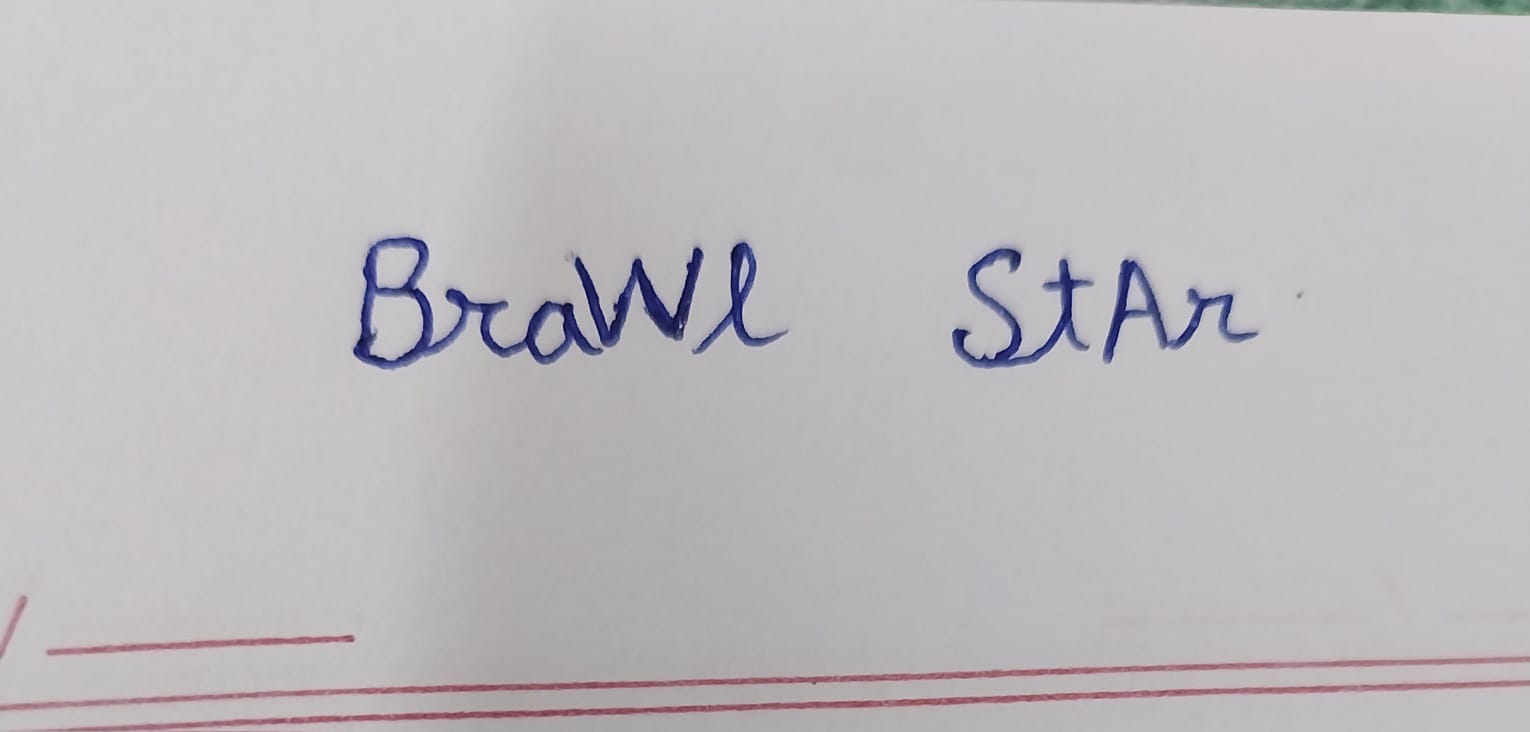 BraWl StAr